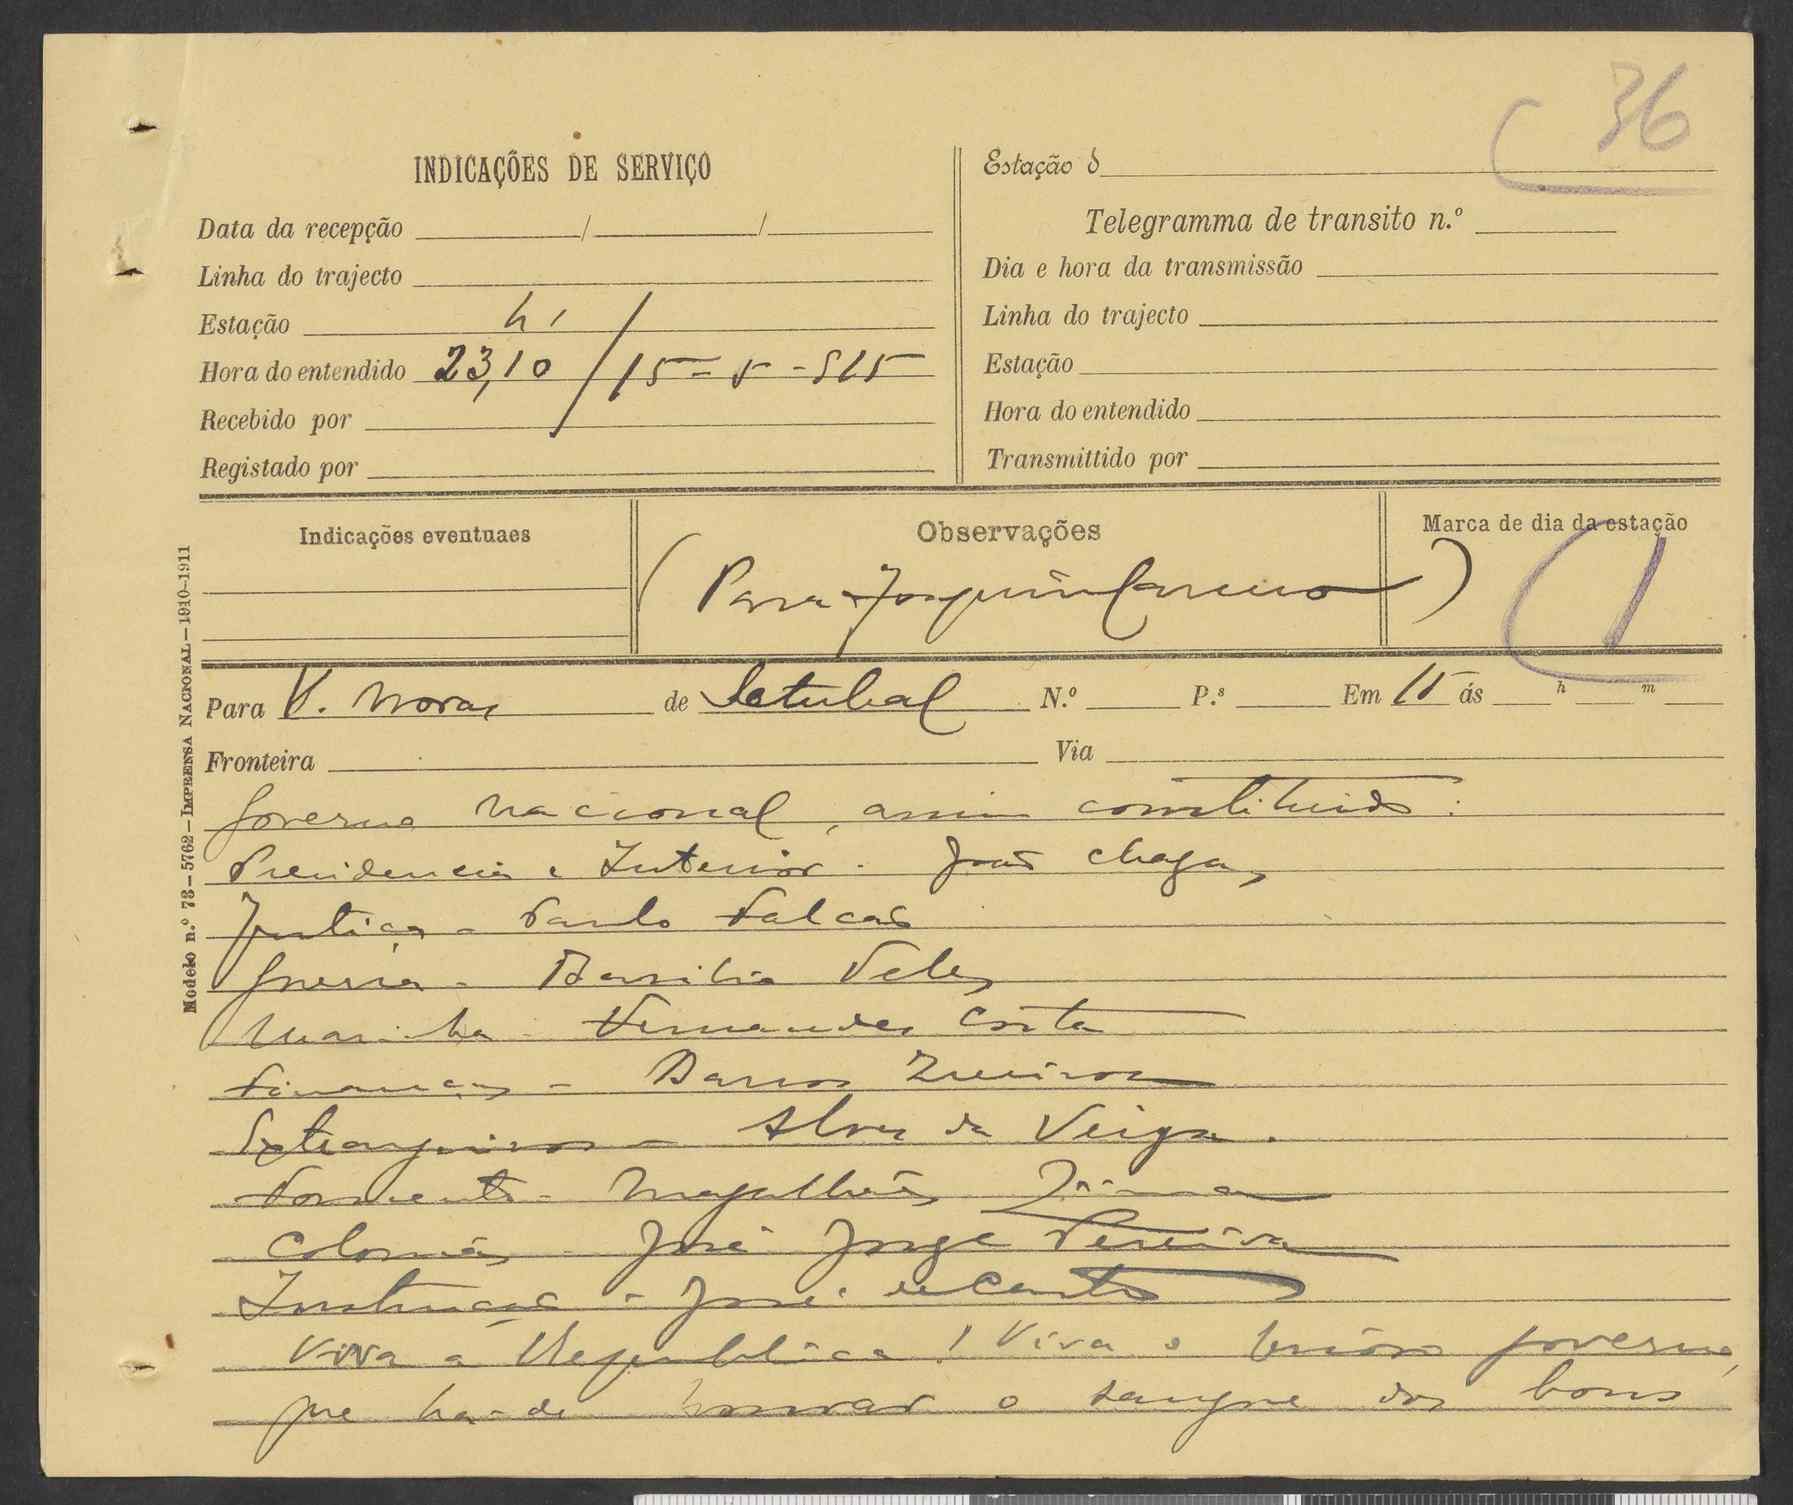 36
INDICAÇÕES DE SERVIÇO
Data da recepção / /
Linha do trajecto
Estação
Hora do entendido 23,10 / 15-5-915
Recebido por
Registado por
Estação d
Telegramma de transito n.º
Dia e hora da transmissão
Linha do trajecto
Estação
Hora do entendido
Transmittido por
Indicações eventuaes
Observações
(Para Joaquim Carneiro)
Marca de dia da estação
1
Modelo n.º 73—5762—IMPRENSA NACIONAL—1910-1911
Para V. Novas de Setubal N.º P.s Em 15 ás h m
Fronteira Via
Governo Nacional, assim constituido:
Presidencia e Interior - João Chagas
Justiça - Paulo Falcão
Guerra - Basilio Teles
Marinha - Fernandes Costa
Finanças - Barros Queiroz
Extrangeiros - Alves da Veiga.
Fomento - Magalhães Lima
Colonias - José Jorge Pereira
Instrucção - José de Castro
Viva a Republica! Viva o governo,
que ha-de honrar o sangue dos bons